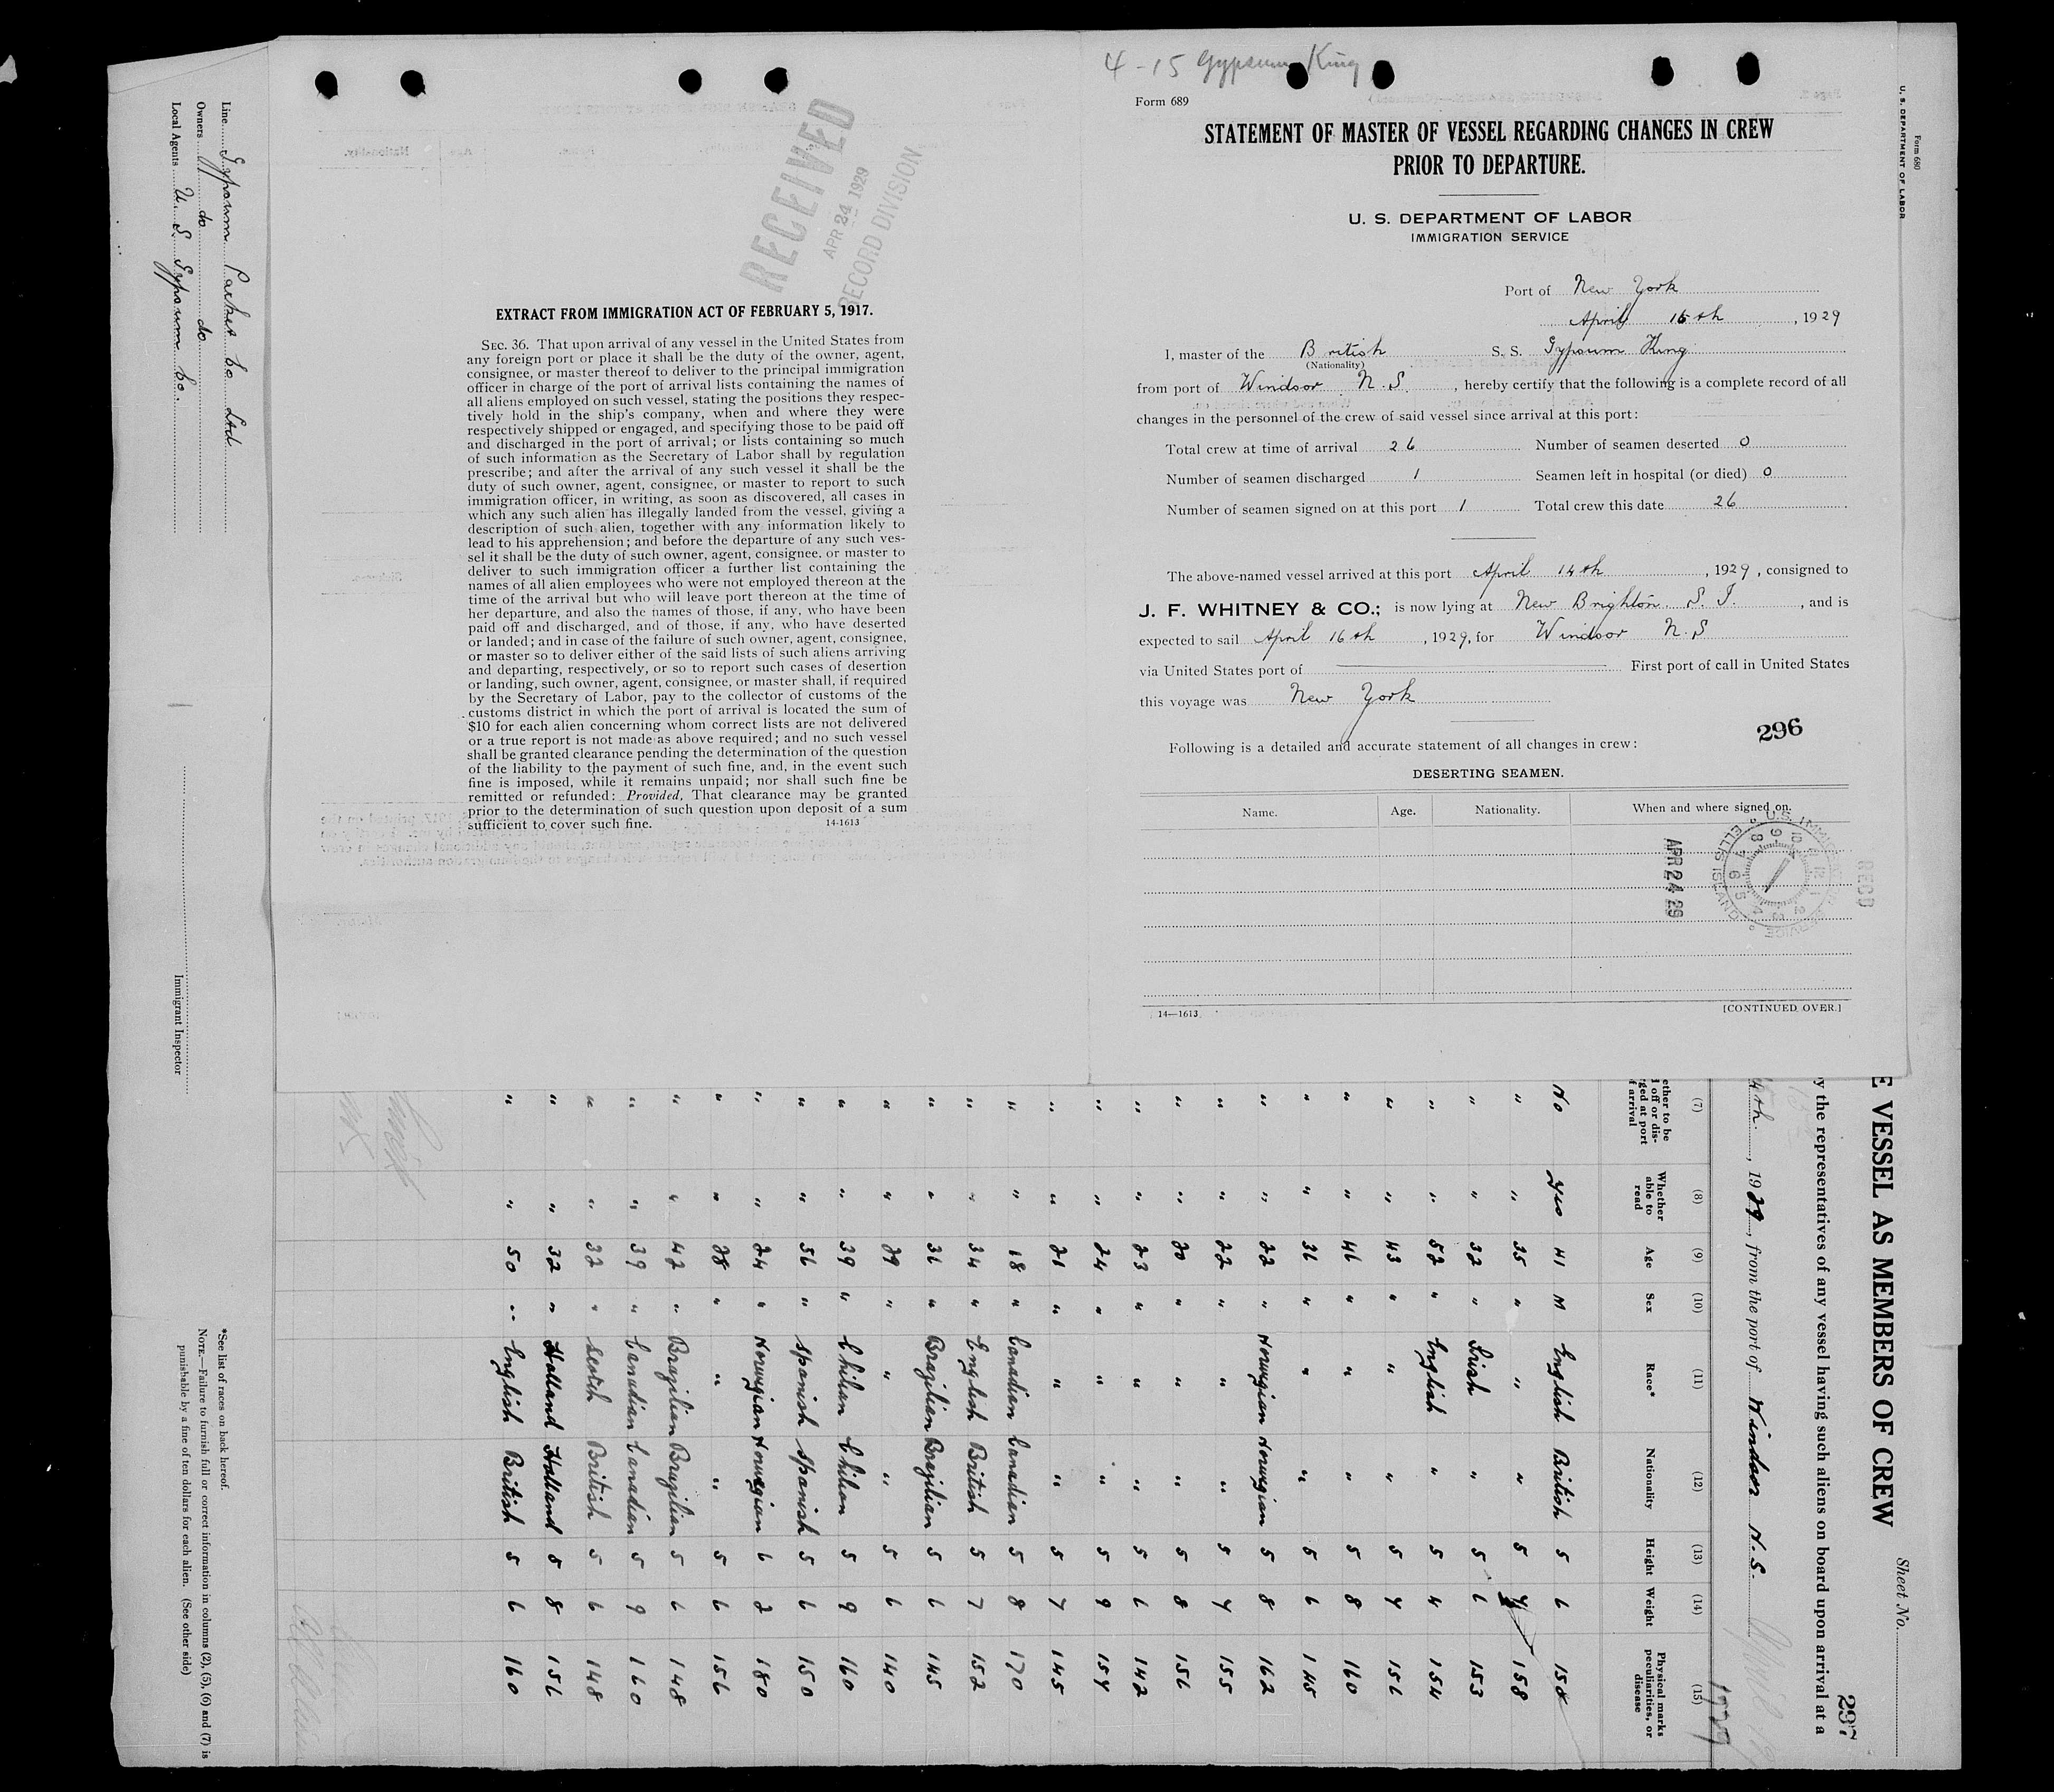 4-15 Gypsum King
Form 689
STATEMENT OF MASTER OF VESSEL REGARDING CHANGES IN CREW
PRIOR TO DEPARTURE.
U. S. DEPARTMENT OF LABOR
IMMIGRATION SERVICE
Port of New York
April 15th, 1929
I, master of the British S. S. Gypsum King
(Nationality)
from port of Windsor N.S., hereby certify that the following is a complete record of all
changes in the personnel of the crew of said vessel since arrival at this port:
Total crew at time of arrival 26 Number of seamen deserted 0
Number of seamen discharged 1 Seamen left in hospital (or died) 0
Number of seamen signed on at this port 1 Total crew this date 26
The above-named vessel arrived at this port April 14th, 1929, consigned to
J. F. WHITNEY & CO.; is now lying at New Brighton S. I., and is
expected to sail April 16th, 1929, for Windsor N.S
via United States port of First port of call in United States
this voyage was New York
296
Following is a detailed and accurate statement of all changes in crew:
DESERTING SEAMEN.
Name. Age. Nationality. When and where signed on.
U.S. IMMIGRATION SERVICE
ELLIS ISLAND
APR 24 29
RECD
14—1613
[CONTINUED OVER.]
RECEIVED
APR 24 1929
RECORD DIVISION
EXTRACT FROM IMMIGRATION ACT OF FEBRUARY 5, 1917.
SEC. 36. That upon arrival of any vessel in the United States from
any foreign port or place it shall be the duty of the owner, agent,
consignee, or master thereof to deliver to the principal immigration
officer in charge of the port of arrival lists containing the names of
all aliens employed on such vessel, stating the positions they respec-
tively hold in the ship's company, when and where they were
respectively shipped or engaged, and specifying those to be paid off
and discharged in the port of arrival; or lists containing so much
of such information as the Secretary of Labor shall by regulation
prescribe; and after the arrival of any such vessel it shall be the
duty of such owner, agent, consignee, or master to report to such
immigration officer, in writing, as soon as discovered, all cases in
which any such alien has illegally landed from the vessel, giving a
description of such alien, together with any information likely to
lead to his apprehension; and before the departure of any such ves-
sel it shall be the duty of such owner, agent, consignee, or master to
deliver to such immigration officer a further list containing the
names of all alien employees who were not employed thereon at the
time of the arrival but who will leave port thereon at the time of
her departure, and also the names of those, if any, who have been
paid off and discharged, and of those, if any, who have deserted
or landed; and in case of the failure of such owner, agent, consignee,
or master so to deliver either of the said lists of such aliens arriving
and departing, respectively, or so to report such cases of desertion
or landing, such owner, agent, consignee, or master shall, if required
by the Secretary of Labor, pay to the collector of customs of the
customs district in which the port of arrival is located the sum of
$10 for each alien concerning whom correct lists are not delivered
or a true report is not made as above required; and no such vessel
shall be granted clearance pending the determination of the question
of the liability to the payment of such fine, and, in the event such
fine is imposed, while it remains unpaid; nor shall such fine be
remitted or refunded: Provided, That clearance may be granted
prior to the determination of such question upon deposit of a sum
sufficient to cover such fine.
14-1613
Form 680
U. S. DEPARTMENT OF LABOR
E VESSEL AS MEMBERS OF CREW
Sheet No.
297
y the representatives of any vessel having such aliens on board upon arrival at a
1929, from the port of Windsor N.S.
1929
(7) (8) (9) (10) (11) (12) (13) (14) (15)
Whether able to read Age Sex Race* Nationality Height Weight Physical marks, peculiarities, or disease
No Yes 41 M English British 5 6 158
" " 35 " " " 5 158
" " 32 " Irish " 5 6 153
" " 52 " English " 5 4 154
" " 43 " " " 5 7 156
" " 46 " " " 5 8 160
" " 36 " " " 5 6 145
" " 22 " Norwegian Norwegian 5 8 162
" " 22 " " " 5 7 155
" " 20 " " " 5 8 156
" " 23 " " " 5 6 142
" " 24 " " " 5 9 157
" " 21 " " " 5 7 145
" " 18 " Canadian Canadian 5 8 170
" " 34 " English British 5 7 152
" " 36 " Brazilian Brazilian 5 6 145
" " 29 " " " 5 6 140
" " 39 " Chilian Chilian 5 9 160
" " 56 " Spanish Spanish 5 6 150
" " 24 " Norwegian Norwegian 6 2 180
" " 28 " " " 5 6 156
" " 42 " Brazilian Brazilian 5 6 148
" " 39 " Canadian Canadian 5 9 160
" " 32 " Scotch British 5 6 148
" " 32 " Holland Holland 5 8 156
" " 50 " English British 5 6 160
Line Gypsum Packet Co Ltd
Owners do do
Local Agents U. S. Gypsum Co.
Immigrant Inspector
*See list of races on back hereof.
NOTE.—Failure to furnish full or correct information in columns (2), (5), (6) and (7) is
punishable by a fine of ten dollars for each alien. (See other side)